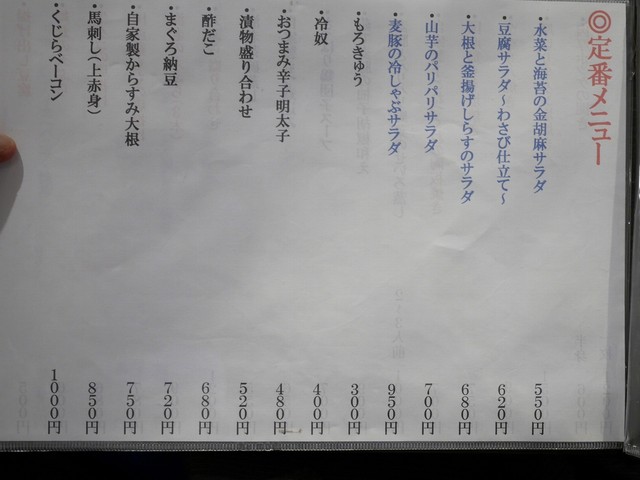 ◎定番メニュー
・水菜と海苔の金胡麻サラダ 550円
・豆腐サラダ～わさび仕立て～ 620円
・大根と釜揚げしらすのサラダ 680円
・山芋のパリパリサラダ 700円
・麦豚の冷しゃぶサラダ 950円
・もろきゅう 300円
・冷奴 400円
・おつまみ辛子明太子 480円
・漬物盛り合わせ 520円
・酢だこ 680円
・まぐろ納豆 720円
・自家製からすみ大根 750円
・馬刺し（上赤身） 850円
・くじらベーコン 1000円